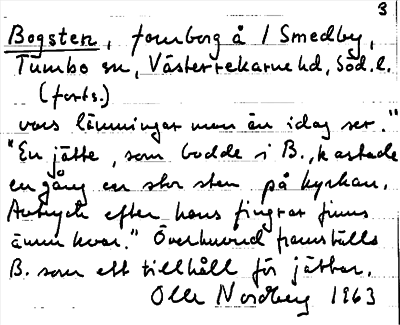 3
Bogsten, fornborg å 1 Smedby,
Tumbo sn, Västerrekarne hd, Söd. l.
(forts.)
vars lämningar man än idag ser."
"En jätte, som bodde i B., kastade
en gång en stor sten på kyrkan.
Avtryck efter hans fingrar finns
ännu kvar." Överhuvud framställs
B. som ett tillhåll för jättar.
Olle Nordberg 1963